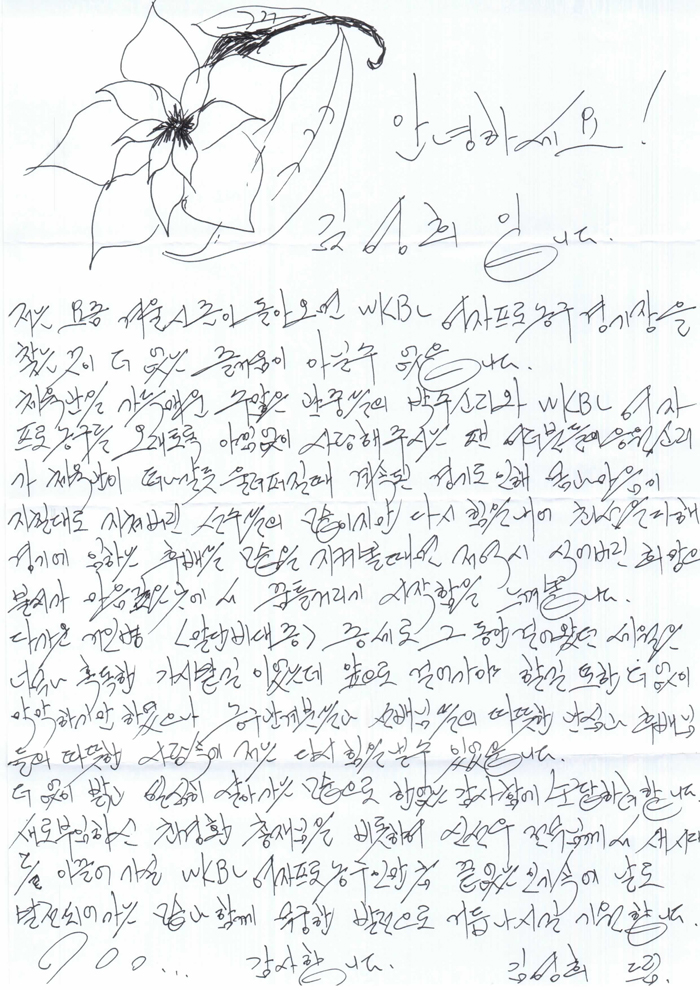 안녕하세요!
김영희 입니다.
저는 요즘 겨울시즌이 돌아오면 WKBL 여자프로농구 경기장을
찾는 것이 더 없는 즐거움이 아닐수 없습니다.
체육관을 가득메운 수많은 관중들의 박수소리와 WKBL 여자
프로농구를 오래토록 아낌없이 사랑해주시는 팬 여러분들의 응원소리
가 체육관이 떠나갈듯 울려퍼질때 계속된 경기로 인해 몸과 마음이
지칠대로 지쳐버린 선수들의 모습이지만 다시 힘을내어 최선을 다해
경기에 임하는 후배들 모습을 지켜볼때면 저 역시 식어버린 화로
불씨가 마음 에서 꿈틀거리기 시작함을 느껴봅니다.
다가온 거인병 <말단비대증> 증세로 그동안 걸어왔던 세월은
너무나 혹독한 가시밭길 이었는데 앞으로 걸어가야 할길 또한 더 없이
막막하기만 하였으나 농구관계자분들과 선배님들의 따뜻한 관심과 후배님
들의 따뜻한 사랑속에 저는 다시 힘을 낼수 있었습니다.
더 없이 밝고 열심히 살아가는 모습으로 한없는 감사함에 보답하려 합니다.
새로부임하신 최경환 총재님을 비롯하여 신선우 전무님께서 새시대
를 이끌어 가실 WKBL 여자프로농구인만큼 끝없는 인기속에 날로
발전되어가는 모습과 함께 무궁한 발전으로 거듭나시길 기원합니다.
... 감사합니다. 김영희 드림.